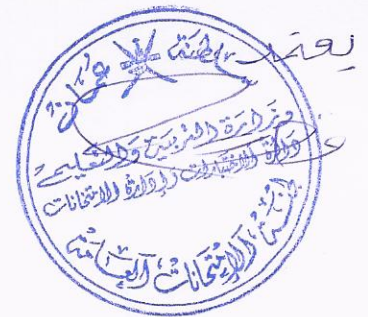 يعتمد
سلطنة عمان
وزارة التربية والتعليم
دائرة الاختبارات وإدارة الامتحانات
الامتحانات العامة